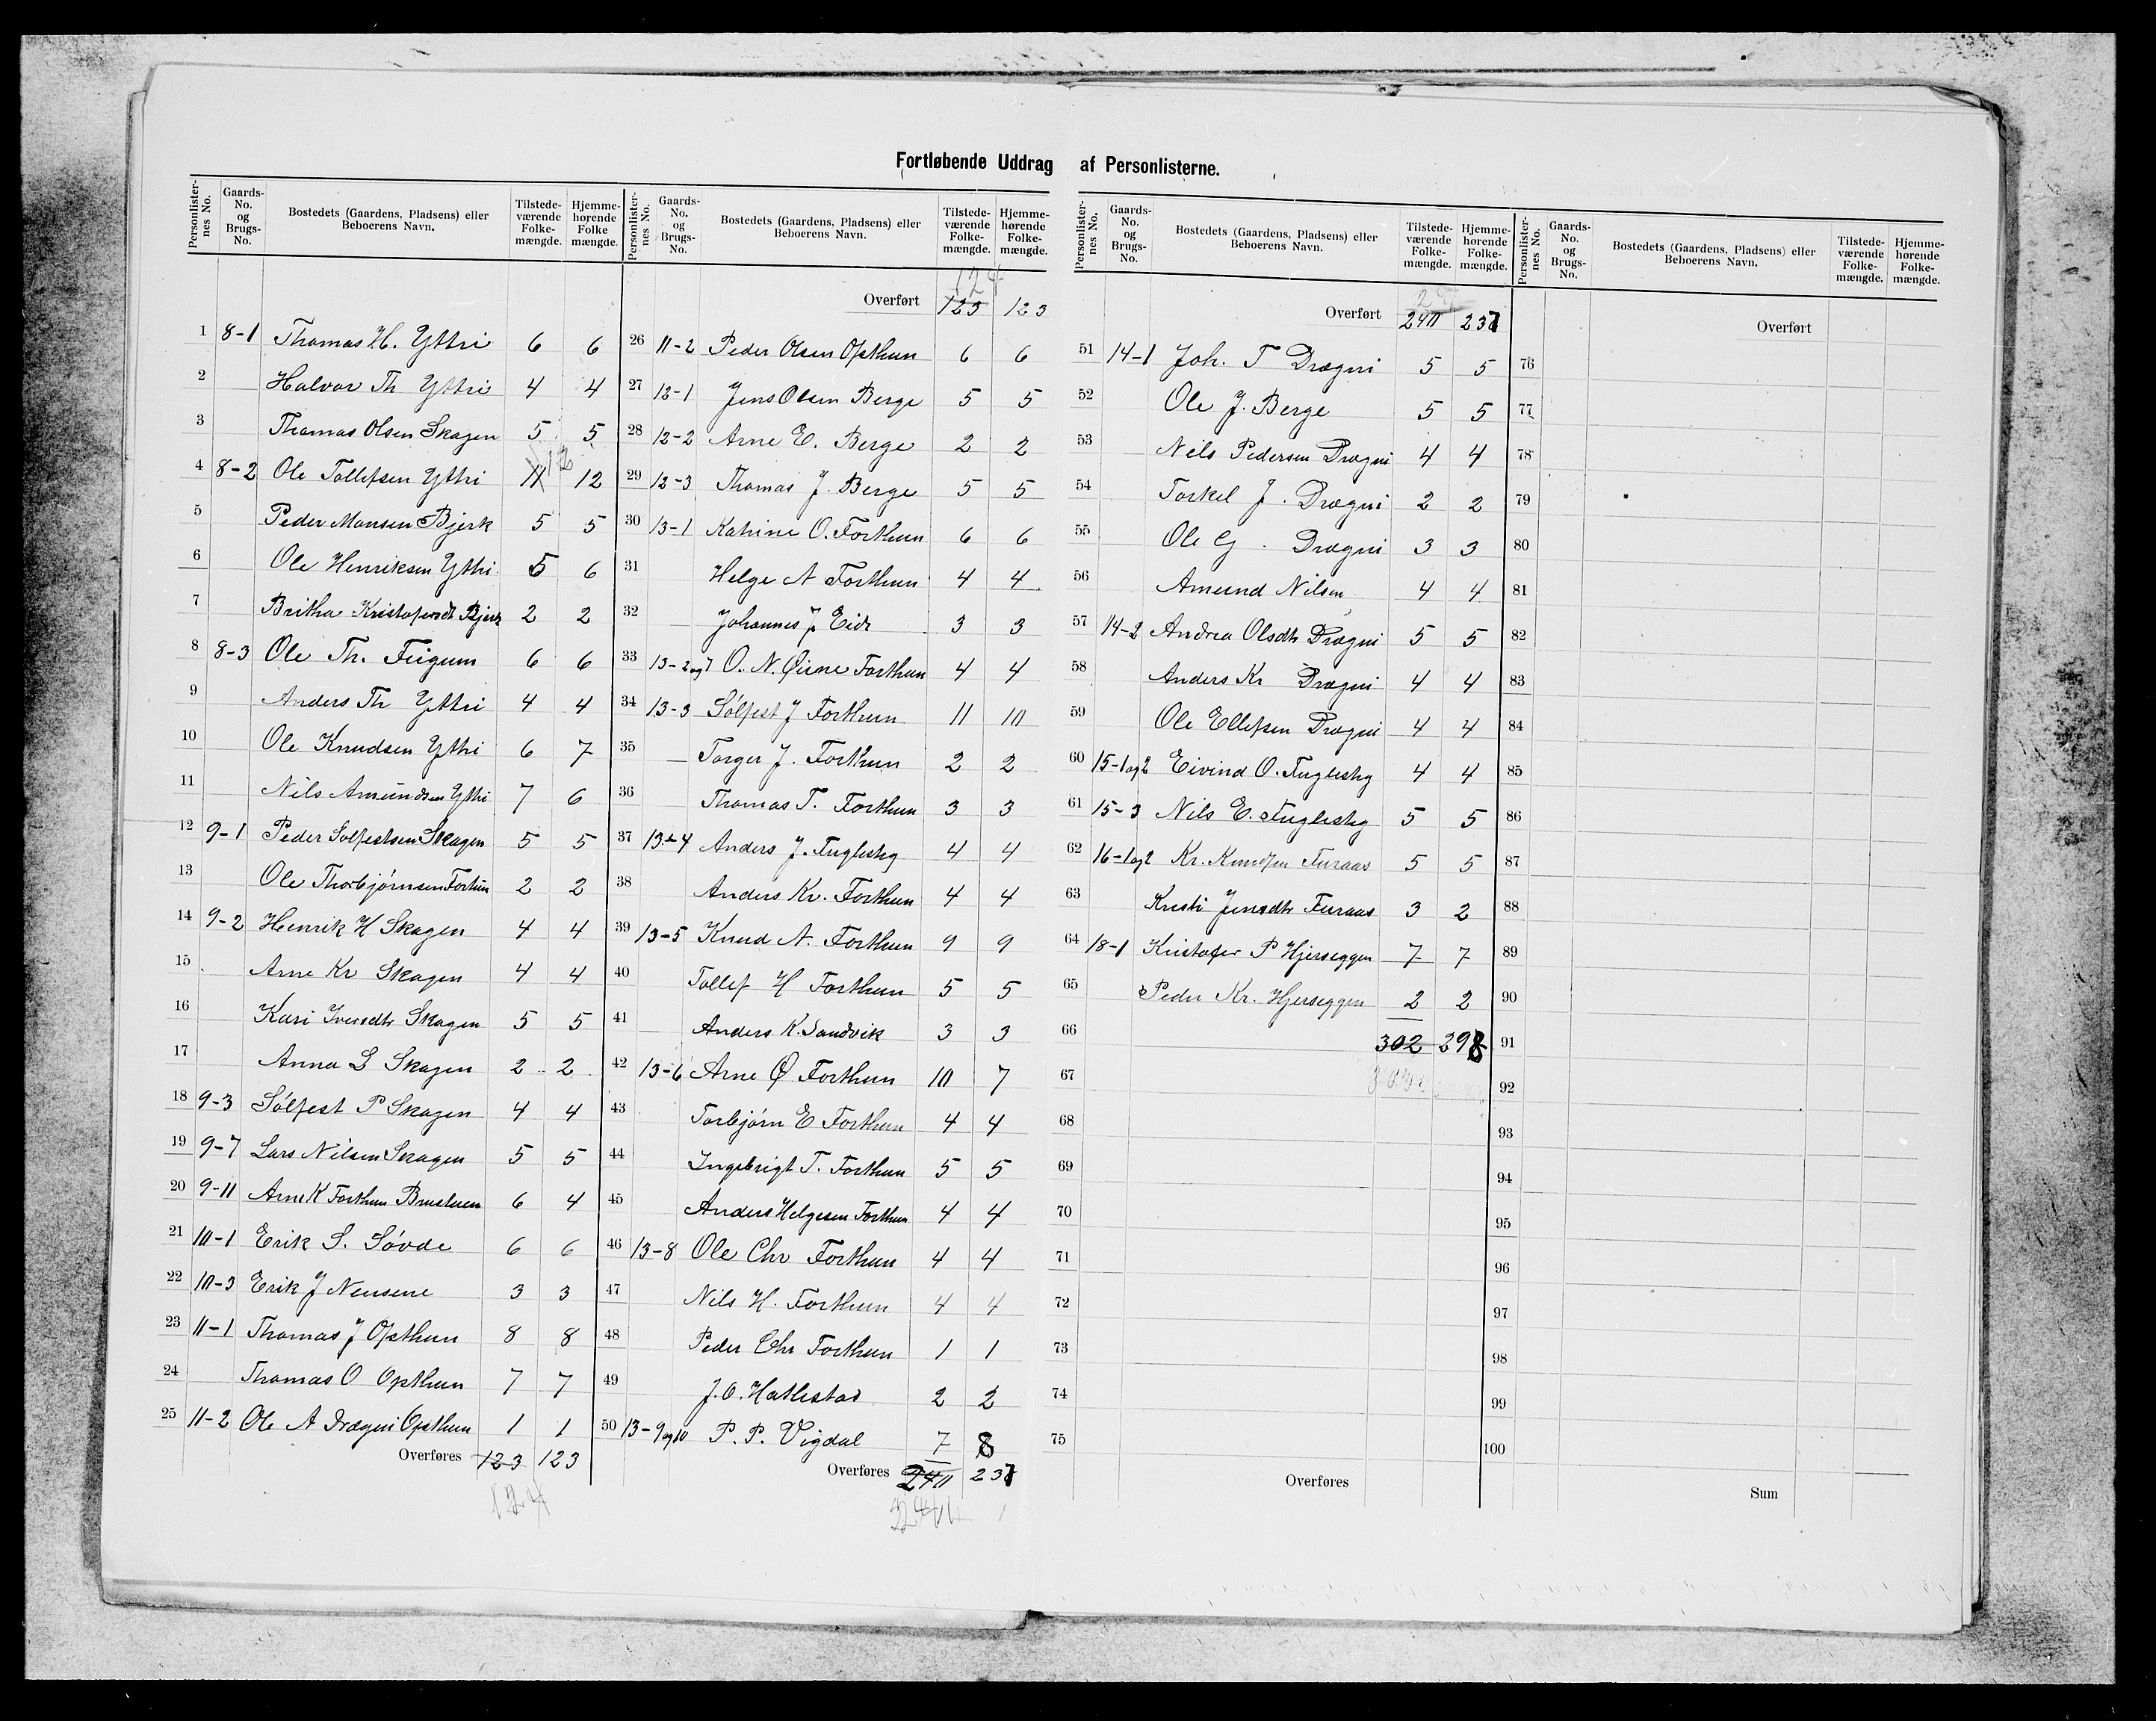 Fortløbende Uddrag af Personlisterne.
Personlisternes No. Gaards-No. og Brugs-No. Bostedets (Gaardens, Pladsens) eller Beboerens Navn. Tilstedeværende Folkemængde. Hjemmehørende Folke mængde.
1 8-1 Thomas H. Ythri 6 6
2 Halvor Th Ythri 4 4
3 Thomas Olsen Skagen 5 5
4 8-2 Ole Tollefsen Ythri 11 12 12
5 Peder Monsen Bjerk 5 5
6 Ole Henriksen Ythri 5 6
7 Britha Kristofersdt Bjerk 2 2
8 8-3 Ole Th. Feigum 6 6
9 Anders Th Ythri 4 4
10 Ole Knudsen Ythri 6 7
11 Nils Amundsen Ythri 7 6
12 9-1 Peder Solfestsen Skagen 5 5
13 Ole Thorbjørnsen Forthun 2 2
14 9-2 Henrik H Skagen 4 4
15 Arne Kr Skagen 4 4
16 Kari Iversdtr Skagen 5 5
17 Anna L Skagen 2 2
18 9-3 Sølfest P Skagen 4 4
19 9-7 Lars Nilsen Skagen 5 5
20 9-11 Arne K Forthun Brusluen 6 4
21 10-1 Erik S. Søvde 6 6
22 10-3 Erik J Neusene 3 3
23 11-1 Thomas J Opthun 8 8
24 Thomas O Opthun 7 7
25 11-2 Ole A Drægni Opthun 1 1
Overføres 123 123
124
Personlisternes No. Gaards-No. og Brugs-No. Bostedets (Gaardens, Pladsens) eller Beboerens Navn. Tilstedeværende Folkemængde. Hjemmehørende Folkemængde.
124
Overført 123 123
26 11-2 Peder Olsen Opthun 6 6
27 12-1 Jens Olsen Berge 5 5
28 12-2 Arne E. Berge 2 2
29 12-3 Thomas J. Berge 5 5
30 13-1 Katrine O. Forthun 6 6
31 Helge N Forthun 4 4
32 Johannes J. Eide 3 3
33 13-2og7 O. N. Øiene Forthun 4 4
34 13-3 Sølfest J Forthun 11 10
35 Torger J. Forthun 2 2
36 Thomas T. Forthun 3 3
37 13-4 Anders J. Fuglesteg 4 4
38 Anders Kr. Forthun 4 4
39 13-5 Knud N. Forthun 9 9
40 Tollef H Forthun 5 5
41 Anders K. Sandvik 3 3
42 13-6 Arne Ø Forthun 10 7
43 Torbjørn E Forthun 4 4
44 Ingebrigt T. Forthun 5 5
45 Anders Helgesen Forthun 4 4
46 13-8 Ole Chr Forthun 4 4
47 Nils H. Forthun 4 4
48 Peder Chr Forthun 1 1
49 J. O. Hatlestad 2 2
50 13-9og10 P. P. Vigdal 7 8
Overføres 240 237
Personlisternes No. Gaards-No. og Brugs-No. Bostedets (Gaardens, Pladsens) eller Beboerens Navn. Tilstedeværende Folkemængde. Hjemmehørende Folkemængde.
Overført 240 237
51 14-1 Joh. T Drægni 5 5
52 Ole J. Berge 5 5
53 Nils Pedersen Drægni 4 4
54 Torkel J. Drægni 2 2
55 Ole G. Drægni 3 3
56 Amund Nilsen 4 4
57 14-2 Andrea Olsdtr Drægni 5 5
58 Anders Kr Drægni 4 4
59 Ole Ellefsen Drægni 4 4
60 15-1og2 Eivind O. Fuglesteg 4 4
61 15-3 Nils E. Fuglesteg 5 5
62 16-1og2 Kr. Knudsen Furaas 5 5
63 Kristi Jensdtr Furaas 3 2
64 18-1 Kristofer P Hjerseggen 7 7
65 Peder Kr. Hjerseggen 2 2
66 302 298
67
68
69
70
71
72
73
74
75
Overføres
Personlisternes No. Gaards-No. og Brugs-No. Bostedets (Gaardens, Pladsens) eller Beboerens Navn. Tilstedeværende Folkemængde. Hjemmehørende Folkemængde.
Overført
76
77
78
79
80
81
82
83
84
85
86
87
88
89
90
91
92
93
94
95
96
97
98
99
100
Sum